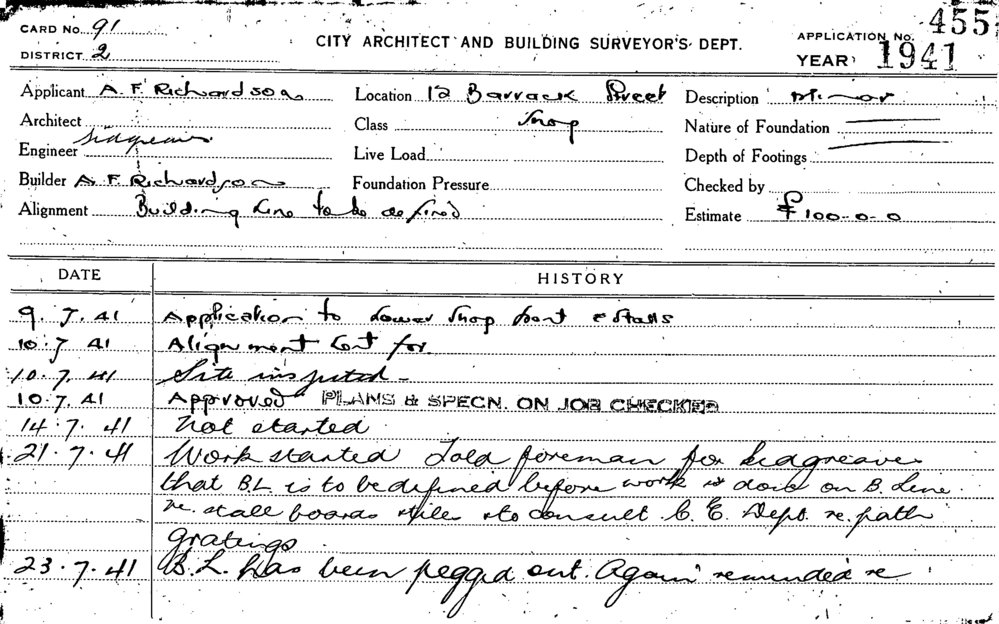 CARD No. 91
DISTRICT 2
CITY ARCHITECT AND BUILDING SURVEYOR'S DEPT.
APPLICATION No. 455
YEAR 1941
Applicant A. F. Richardson
Location 12 Barrack Street
Description Minor
Architect
Sidgreaves
Class Shop
Nature of Foundation
Engineer
Live Load
Depth of Footings
Builder A. F. Richardson
Foundation Pressure
Checked by
Alignment Building Line to be defined
Estimate £100-0-0
DATE
HISTORY
9. 7. 41 Application to Lower Shop front & Stalls
10. 7 41 Alignment for
10. 7. 41 Site inspected -
10. 7. 41 Approved PLANS & SPECN. ON JOB CHECKED
14. 7. 41 Not started
21. 7. 41 Work started Told foreman for Sidgreaves
that B.L. is to be defined before work is done on B. Line
re. stall boards tiles & to consult C. E. Dept. re. path
gratings
23. 7. 41 B. L. has been pegged out. Again reminded re